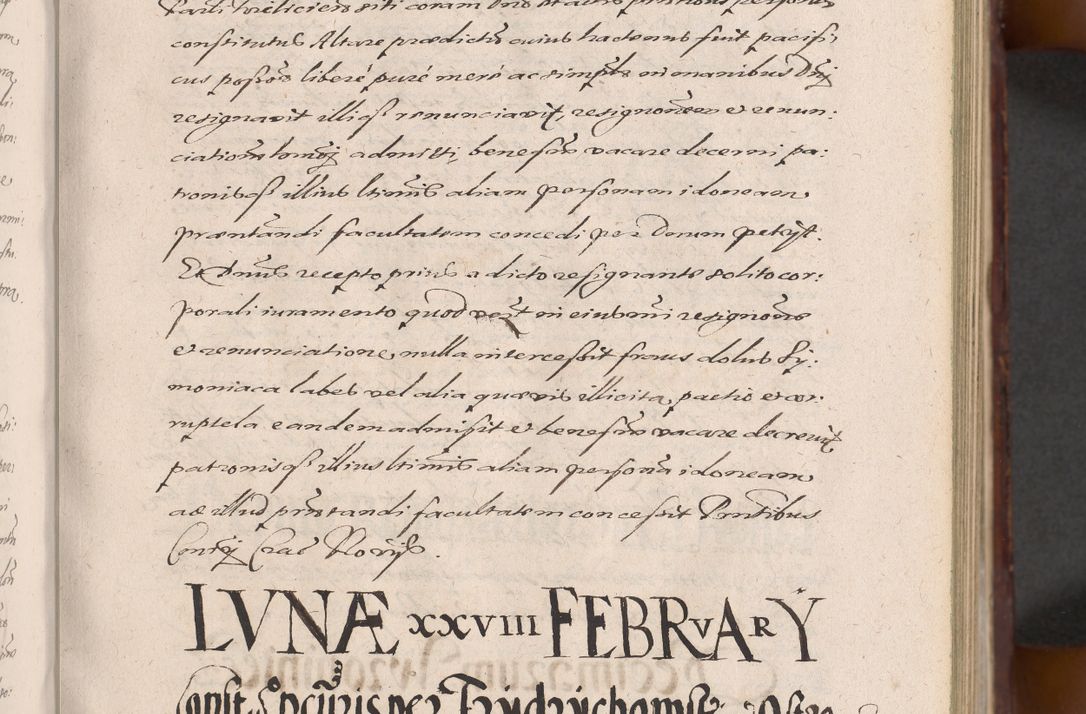 constitutus Altare prædictũ cuius hactenus fuit pacifi,
cus possor̃ liberé puré meré ac simplr̃ in manibus Dnj
resignavit illiqʒ renunciavit, resignoñem et renun:
ciationẽ admitti, benefm̃ vacare decerni pa:
tronisqʒ illius ltimis aliam personam idoneam
præntandi facultatem concedi per Dnum petijt.
Et Dnus recepto prius a dicto resignante solito cor:
porali iuramento quod in eiusmi resignõne
et renunciatione nulla intercessit fraus dolus Sy:
moniaca labes vel alia quævis illicita pactio et cor:
ruptela eandem admisit et benefm̃ vacare decrevit
patronisqʒ illius ltimis aliam personã idoneam
ad illud prñtandi facultatem concessit Prñtibus
LVNÆ XXVIII FEBRVARŸ